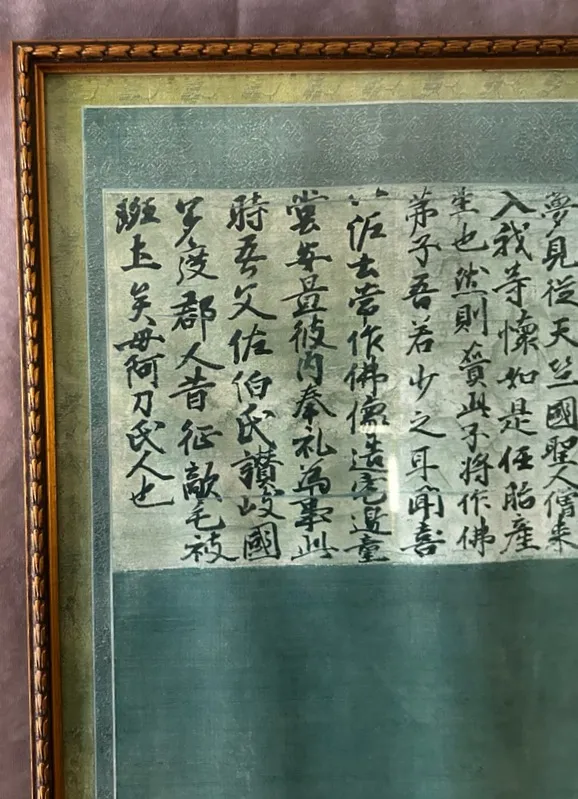 夢見從天竺國聖人僧来
入我等懐如是任胎産
生也然則賫此子将作佛
弟子吾若少之耳聞喜
以土常作佛像造宅邊童
堂安置彼内奉礼為事此
時吾父佐伯氏讃岐國
多度郡人昔征敵毛被
班土矣母阿刀氏人也